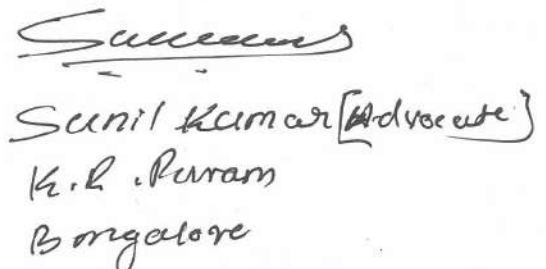 Sunil Kumar [Advocate]
K.R. Puram
Bangalore